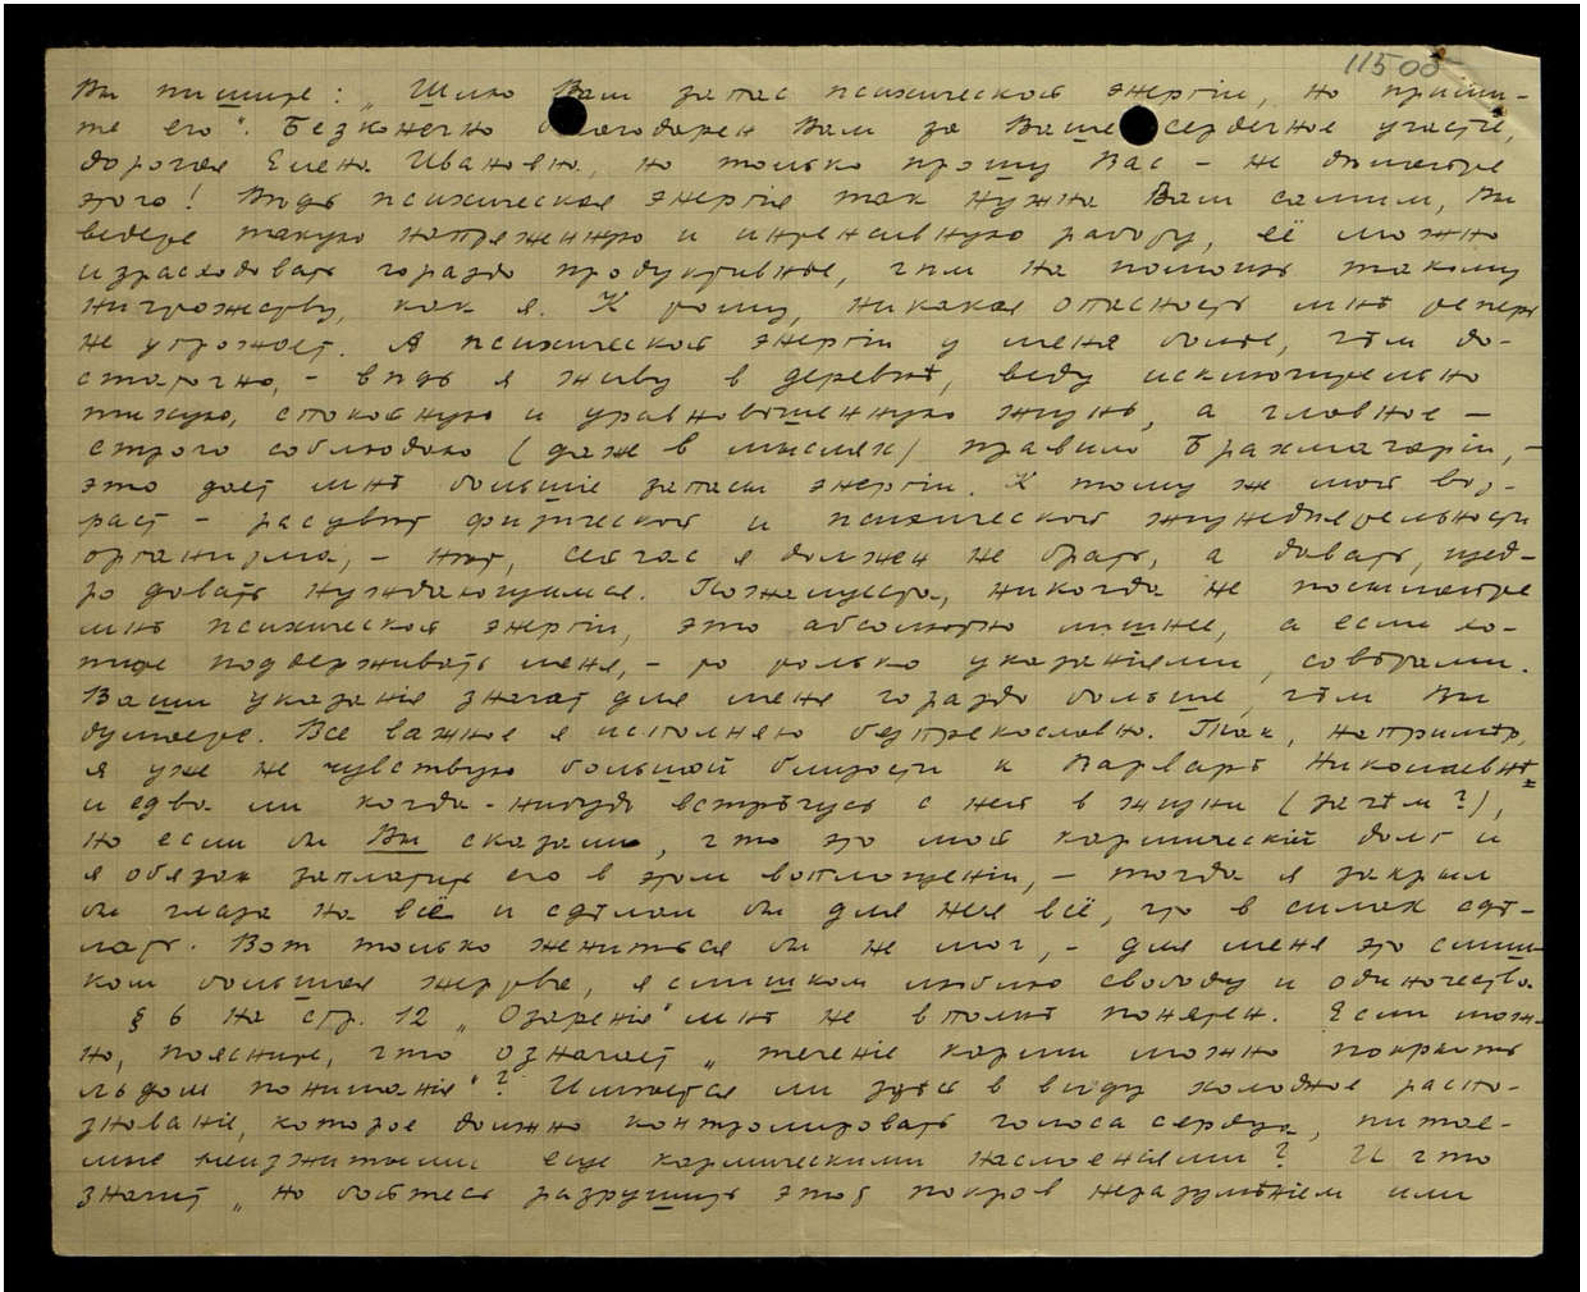 11500
Вы пишите: „Шлю Вам запас психической энергiи, но примите
те его". Безконечно благодарен Вам за Ваше сердечное участiе,
дорогая Елена Ивановна, но только прошу Вас – не дѣлайте
этого! Вѣдь психическая энергiя так нужна Вам самим, Вы
ведете такую напряженную и интенсивную работу, её можно
израсходовать гораздо продуктивнѣе, чѣм на помощь такому
ничтожеству, как я. К тому, никакая опасность мнѣ теперь
не угрожает. А психической энергiи у меня болѣе, чѣм до-
статочно, – вѣдь я живу в деревнѣ, веду исключительно
тихую, спокойную и уравновѣшенную жизнь, а главное –
строго соблюдаю (даже в мыслях) правило Брахмачарiи, –
это дает мнѣ большiе запасы энергiи. К тому же мой воз-
раст – расцвѣт физической и психической жизнедѣятельности
организма, – нѣт, сейчас я должен не брать, а давать, щед-
ро давать нуждающимся. Пожалуйста, никогда не посылайте
мнѣ психической энергiи, это абсолютно лишнее, а если хо-
тите поддерживать меня, – то только указанiями, совѣтами.
Ваши указанiя значат для меня гораздо больше, чѣм Вы
думаете. Все важное я исполняю безпрекословно. Так, напримѣр,
я уже не чувствую большой близости к Варварѣ Николаевнѣ
и едва ли когда-нибудь встрѣчусь с ней в жизни (зачѣм?),
но если бы Вы сказали, что это мой кармическiй долг и
я обязан заплатить его в этом воплощенiи, – тогда я закрыл
бы глаза на всё и сдѣлал бы для нея всё, что в силах сдѣ-
лать. Вот только жениться бы не мог, – для меня это слиш-
ком большая жертва, я слишком люблю свободу и одиночество.
§ 6 на стр. 12 „Озаренiе" мнѣ не вполнѣ понятен. Если мож-
но, поясните, что означает „теченiе кармы можно покрыть
льдом пониманiя"? Имѣется ли здѣсь в виду холодное распо-
знаванiе, которое должно контролировать голоса сердца, питае-
мые неизжитыми еще кармическими наслоенiями? И что
значит „но бойтесь разрушить этот покров неразумѣнiем или